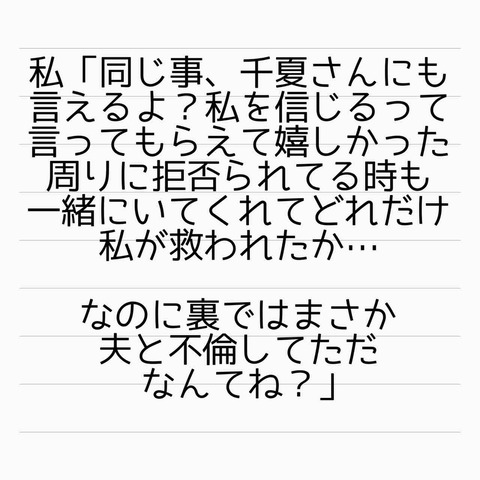 私「同じ事、千夏さんにも
言えるよ？私を信じるって
言ってもらえて嬉しかった
周りに拒否られてる時も
一緒にいてくれてどれだけ
私が救われたか…
なのに裏ではまさか
夫と不倫してただ
なんてね？」